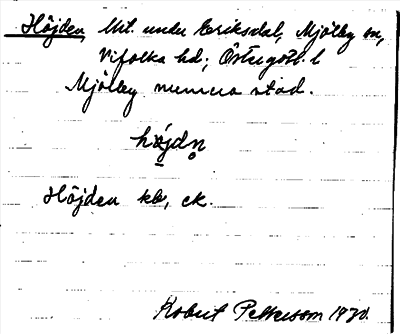 Höjden, Utt. under Eriksdal, Mjölby sn,
Vifolka hd; Östergötl. l
Mjölby numera stad.
höjdn̥
Höjden kb, ek.
Robert Pettersson 1930.